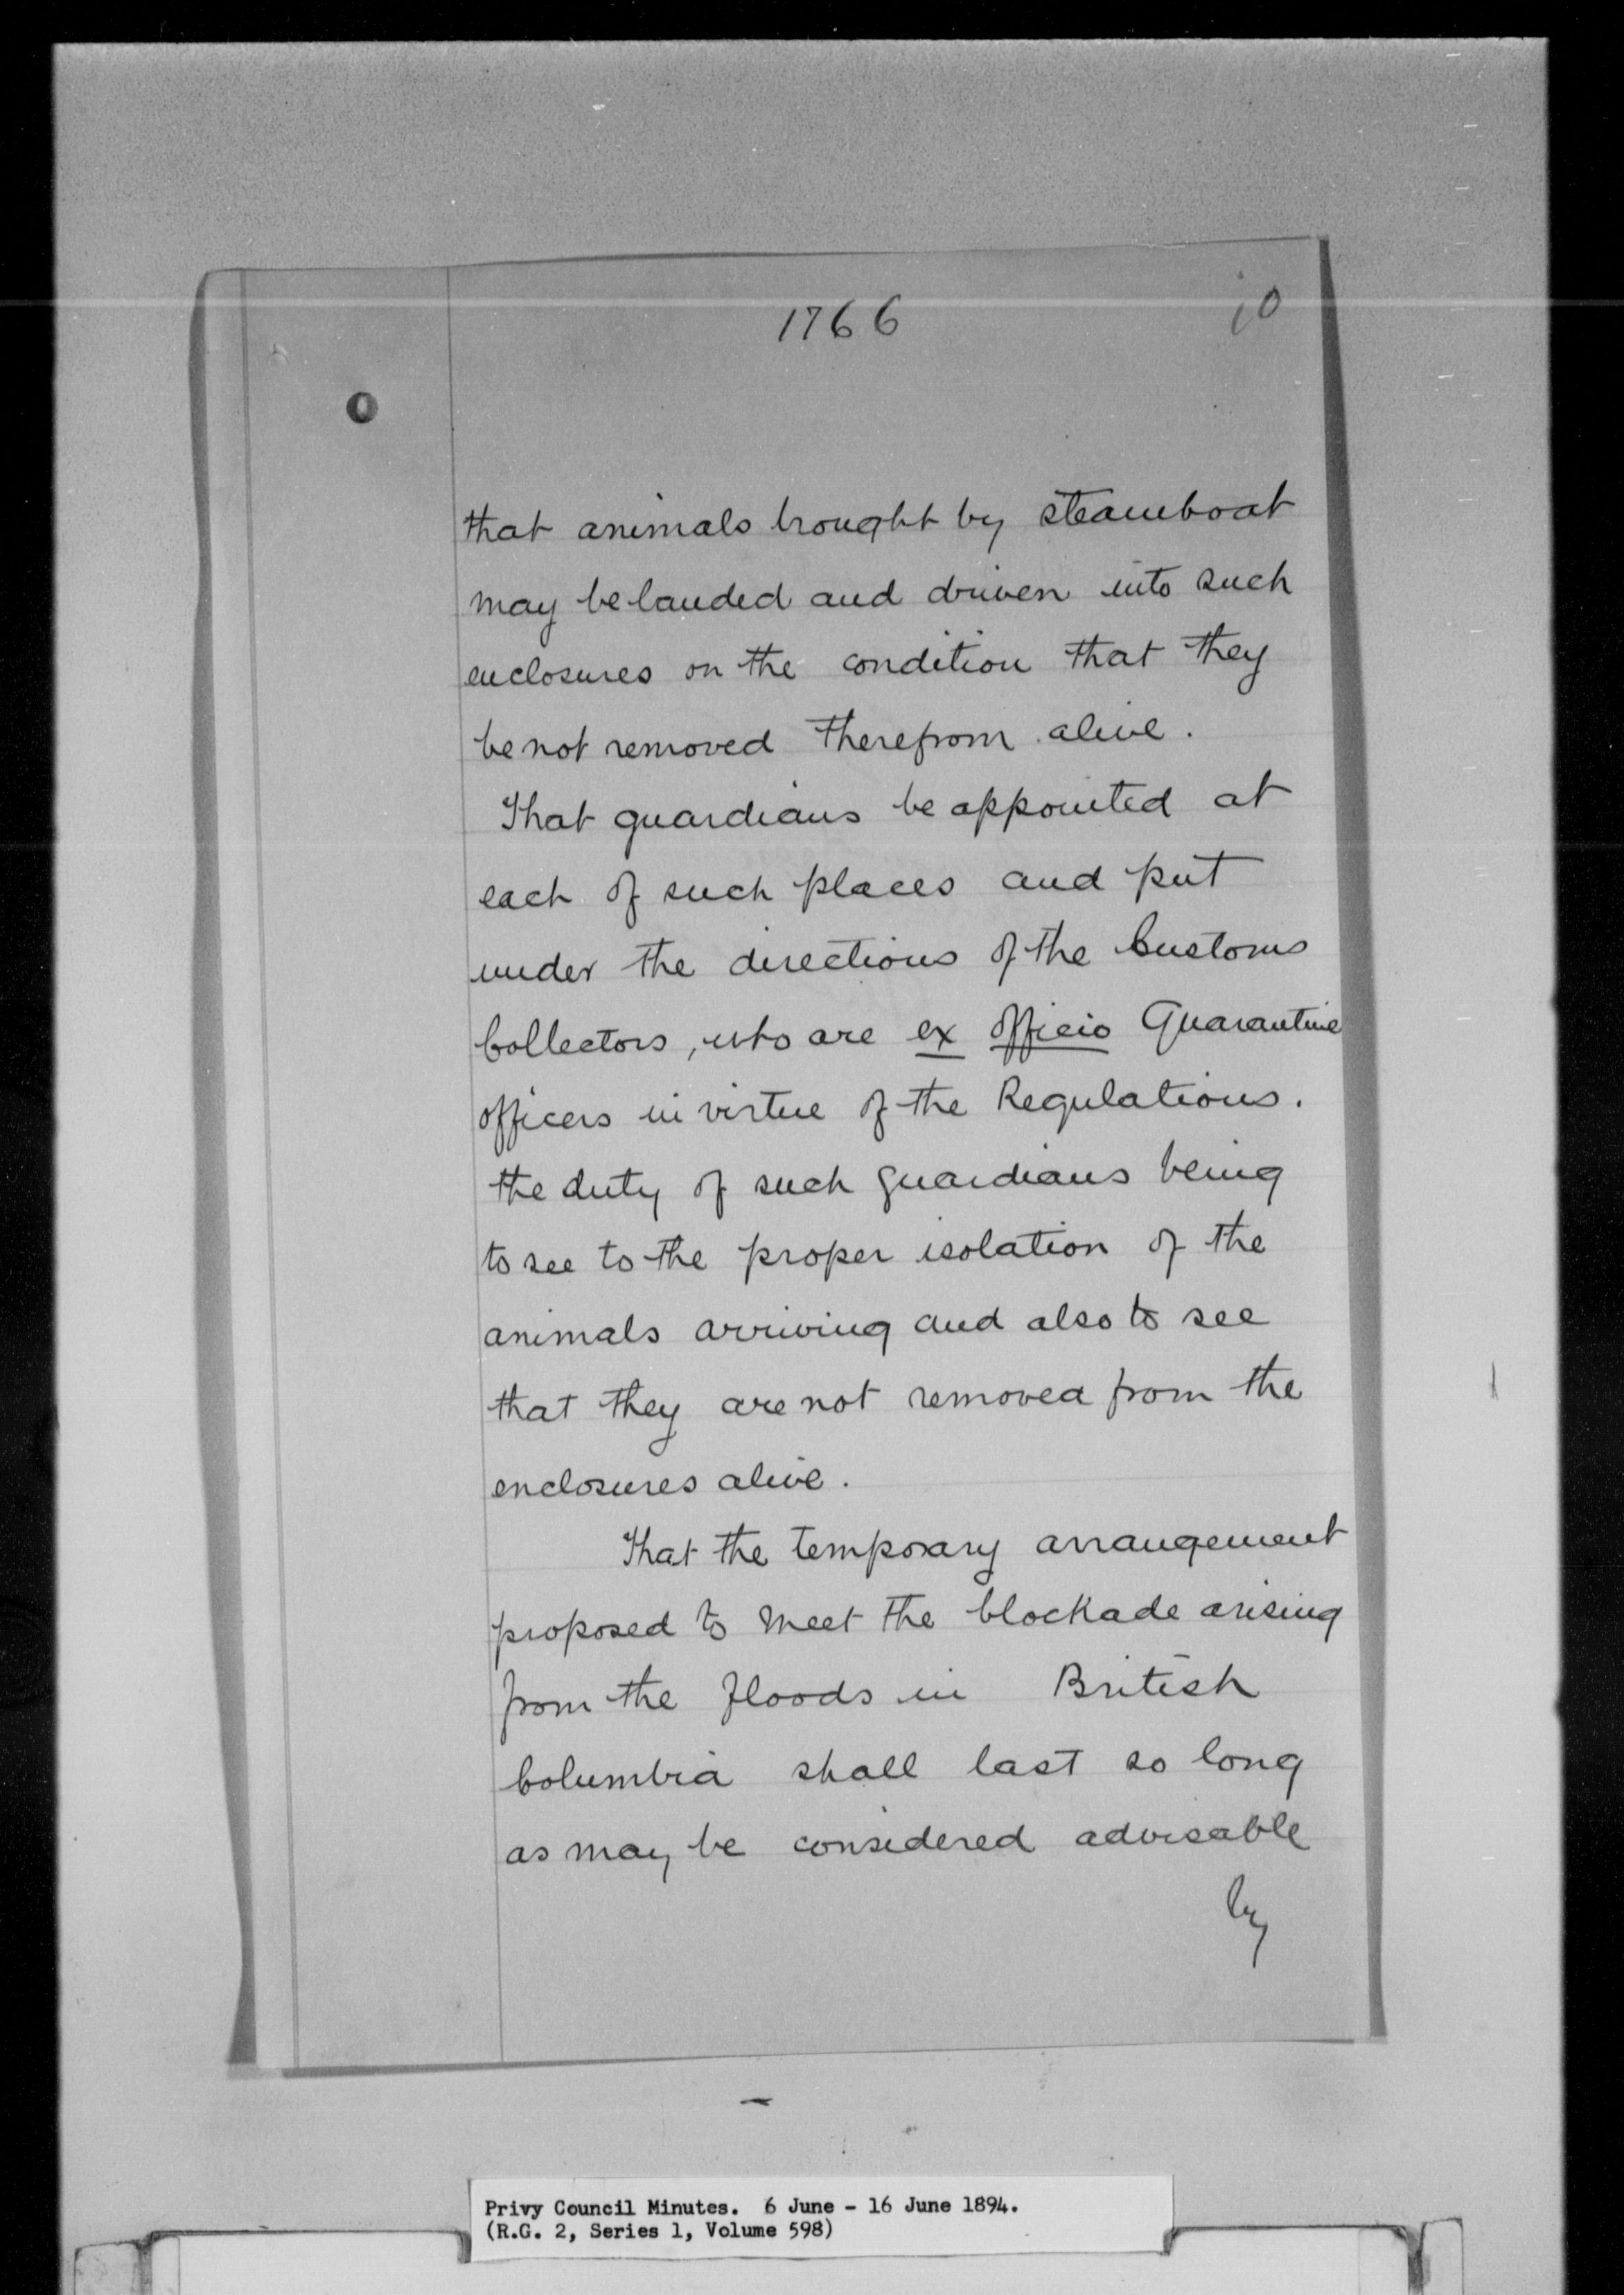 1766
10
that animals brought by steamboat
may be landed and driven into such
enclosures on the condition that they
be not removed therefrom alive.
That guardians be appointed at
each of such places and put
under the directions of the Customs
Collectors, who are ex officio Quarantine
officers in virtue of the Regulations.
the duty of such guardians being
to see to the proper isolation of the
animals arriving and also to see
that they are not removed from the
enclosures alive.
That the temporary arrangement
proposed to meet the blockade arising
from the floods in British
Columbia shall last so long
as may be considered advisable
by
Privy Council Minutes. 6 June - 16 June 1894.
(R.G. 2, Series 1, Volume 598)